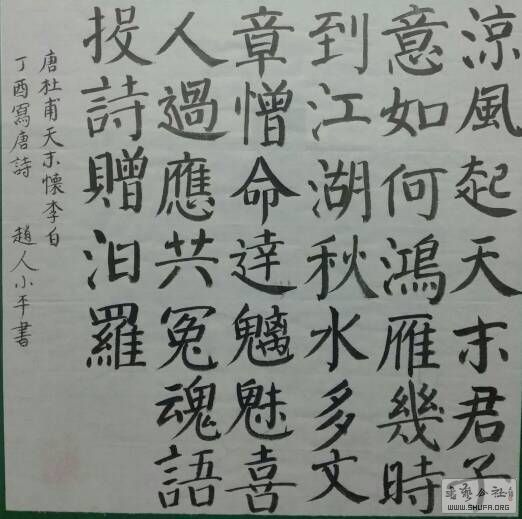 涼風起天末君子
意如何鴻雁幾時
到江湖秋水多文
章憎命達魑魅喜
人過應共冤魂語
投詩贈汨羅
唐杜甫天末懷李白
丁酉寫唐詩 趙人小平書
WWW.SHUFA.ORG